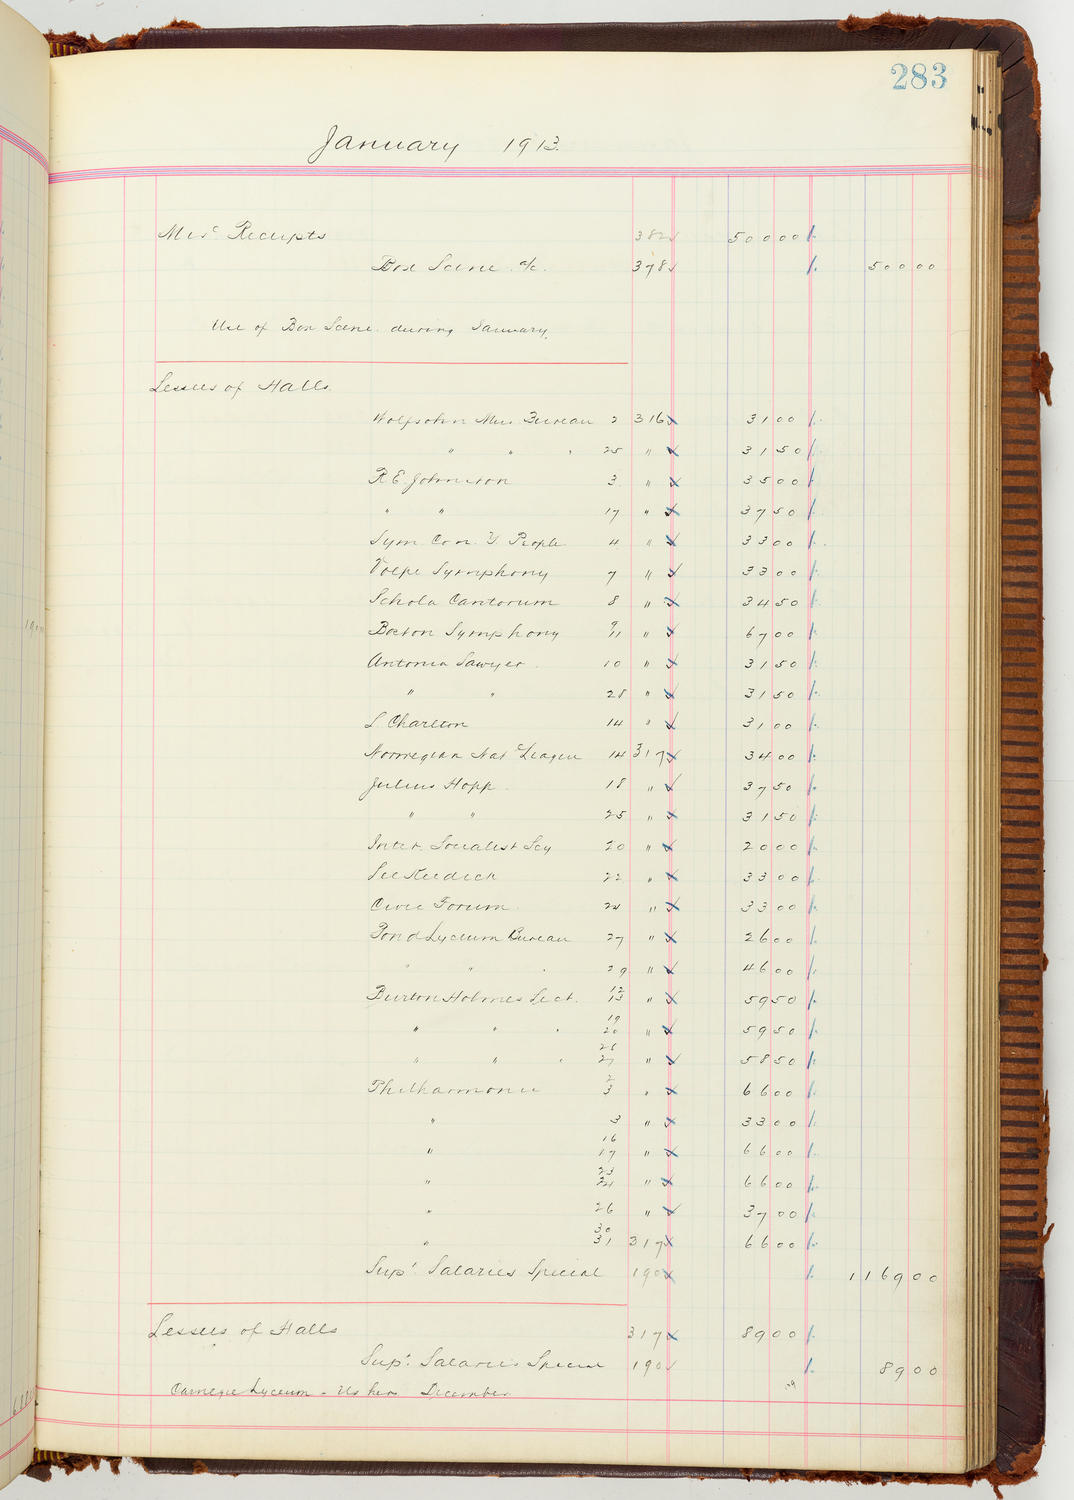 283
January 1913.
Misc Receipts 382 50000
Box Scene a/c. 378 50000
Use of Box Scene during January.
Lessees of Halls
Wolfsohn Mus. Bureau 2 316 3100
" " " 25 " 3150
R.E. Johnston 3 " 3500
" " 17 " 3750
Sym. Con. Y. People 4 " 3300
Volpe Symphony 7 " 3300
Schola Cantorum 8 " 3450
Boston Symphony 9 11 " 6700
Antonia Sawyer 10 " 3150
" " 28 " 3150
L Charlton 14 " 3100
Norwegian Nat League 14 317 3400
Julius Hopp 18 " 3750
" " 25 " 3150
Inter. Socialist Scy 20 " 2000
Lee Keedick 22 " 3300
Civic Forum 24 " 3300
Pond Lyceum Bureau 27 " 2600
" " " 29 " 4600
Burton Holmes Lect. 12 13 " 5950
" " " 19 20 " 5950
" " " 26 27 " 5850
Philharmonic 2 3 " 6600
" 3 " 3300
" 16 17 " 6600
" 23 24 " 6600
" 26 " 3700
" 30 31 317 6600
Supt. Salaries Special 190 116900
Lessees of Halls 317 8900
Supt. Salaries Special 190 8900
Carnegie Lyceum - Ushers December